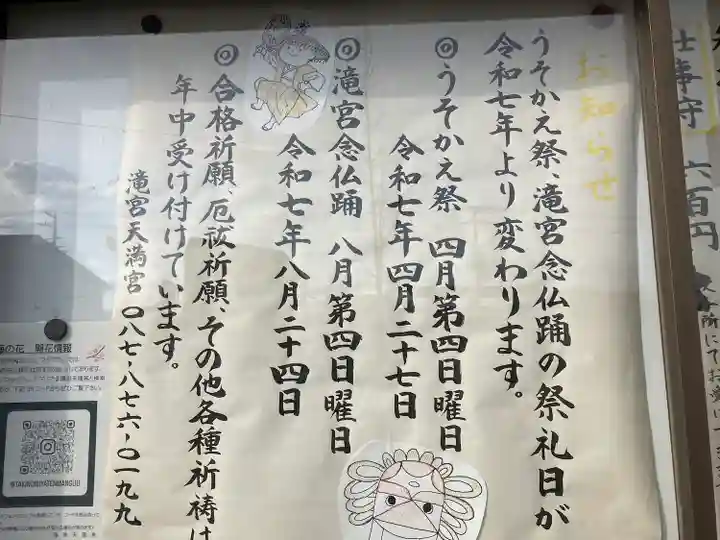 お知らせ
うそかえ祭、滝宮念仏踊の祭礼日が
令和七年より変わります。
◎うそかえ祭 四月第四日曜日
令和七年四月二十七日
◎滝宮念仏踊 八月第四日曜日
令和七年八月二十四日
◎合格祈願、厄祓祈願、その他各種祈祷は
年中受け付けています。
滝宮天満宮 〇八七-八七六-〇一九九
仕事守 六百円
の花 開花情報
@TAKINOMIYATENMANGU